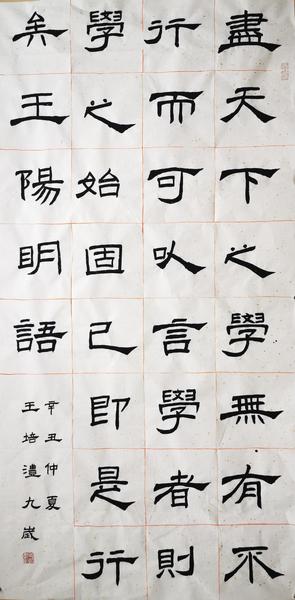 盡天下之學無有不
行而可以言學者則
學之始固已即是行
矣王陽明語
辛丑仲夏
王培澧九歲